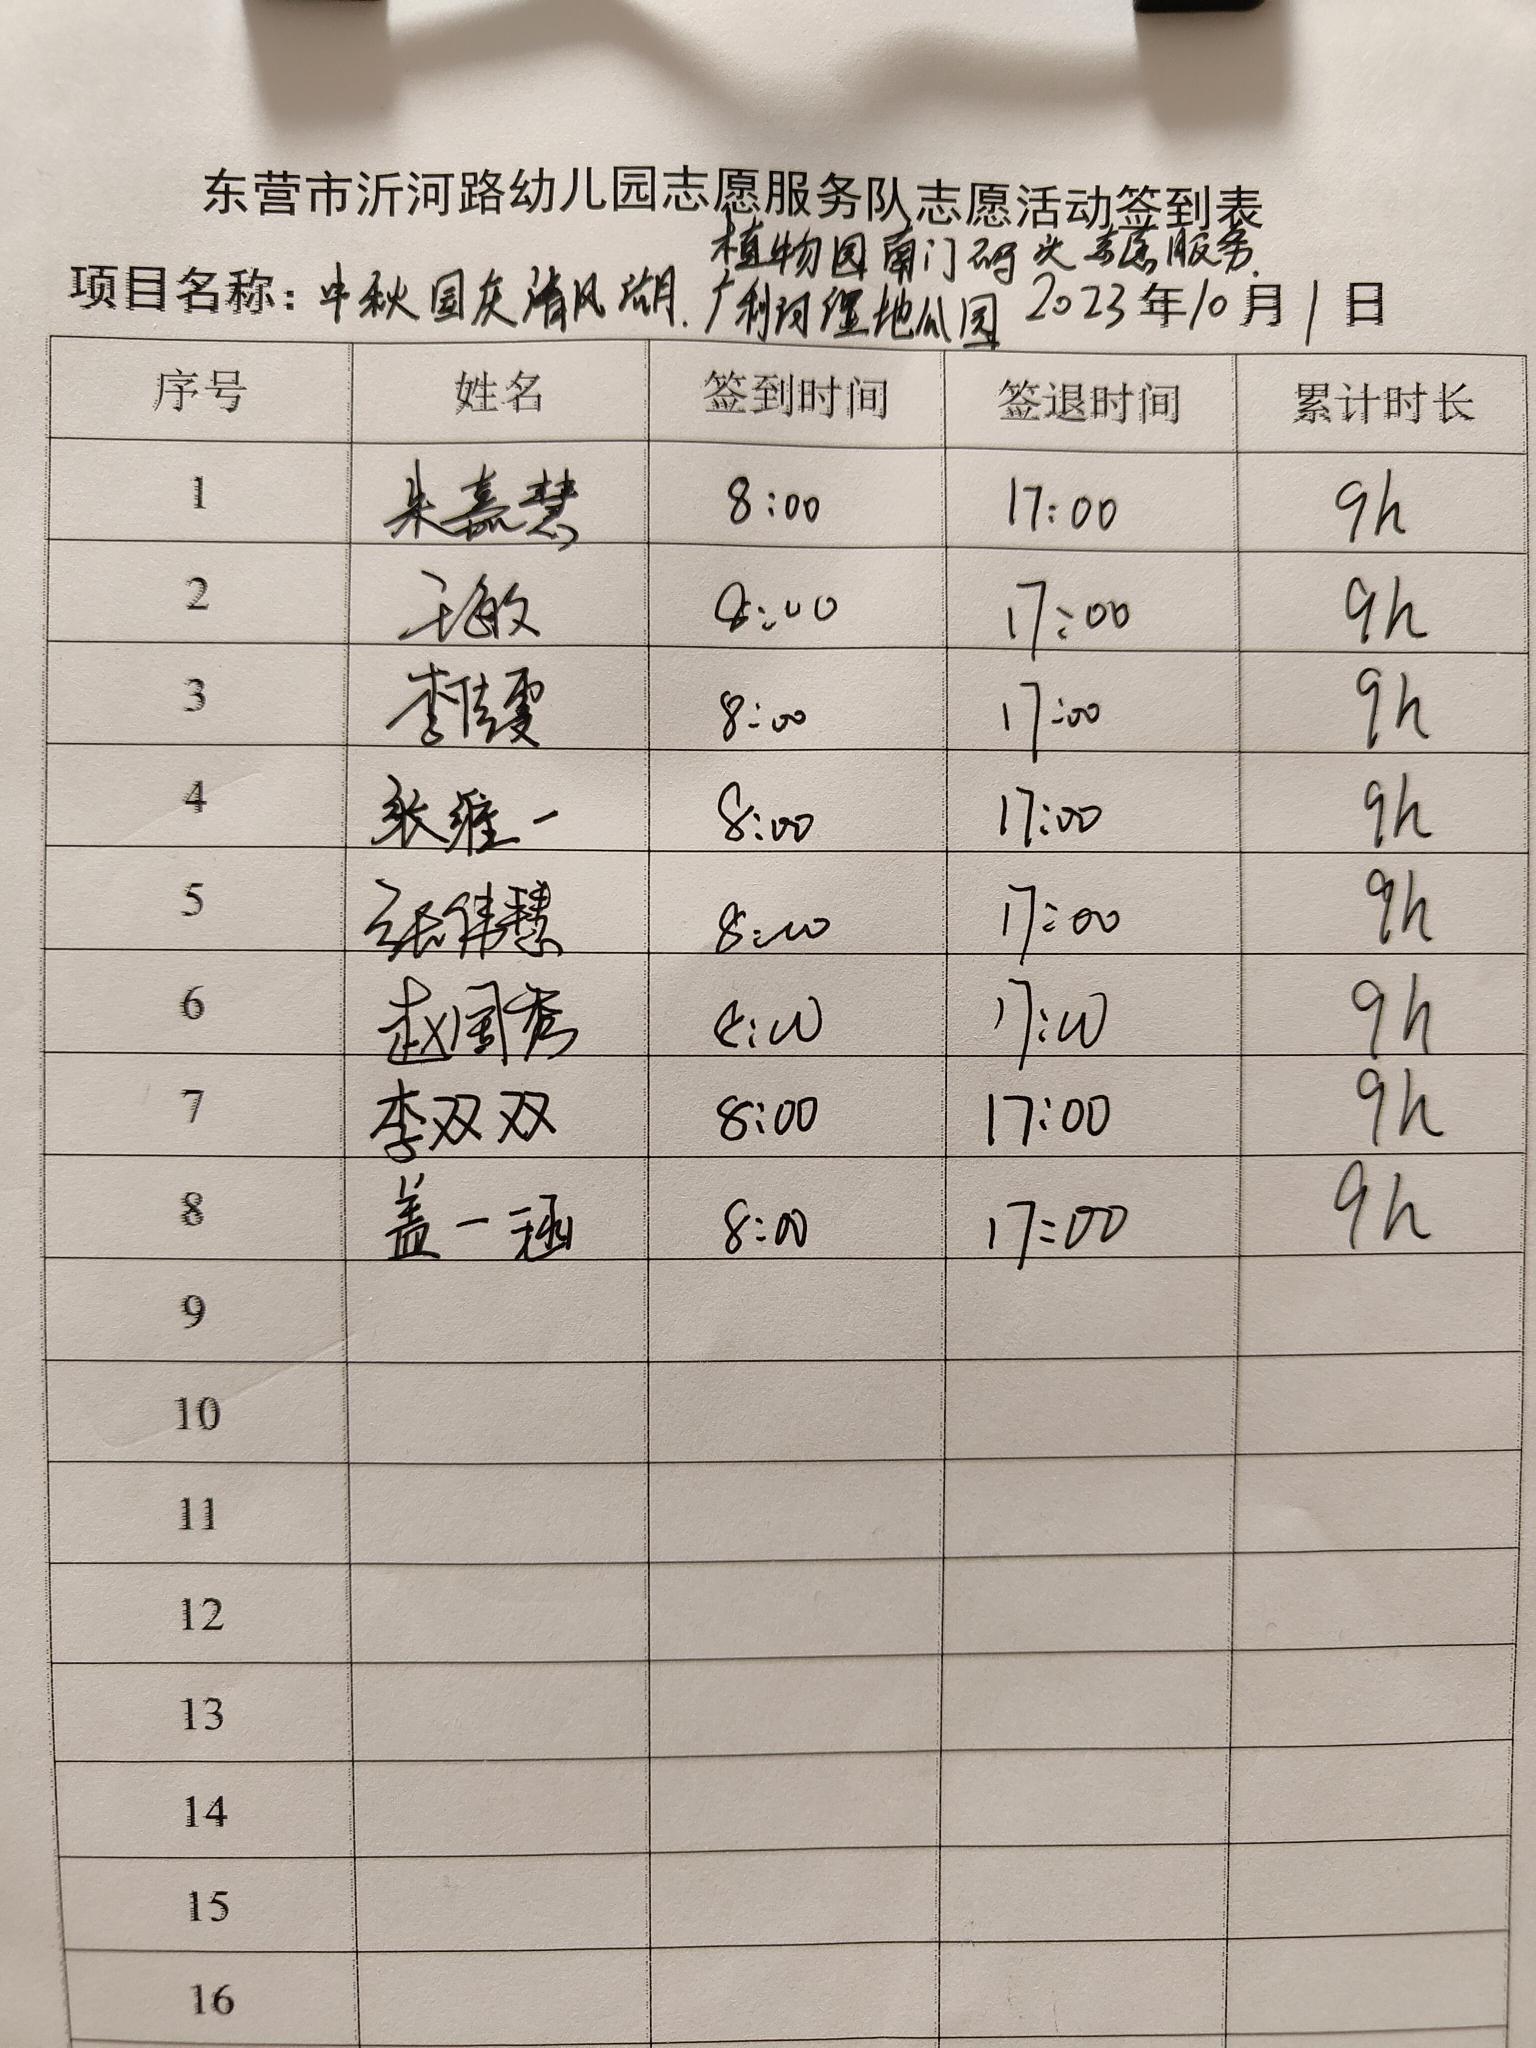 东营市沂河路幼儿园志愿服务队志愿活动签到表
植物园南门码头 服务
项目名称：中秋国庆清风湖、广利河湿地公园 2023年10月1日
序号 姓名 签到时间 签退时间 累计时长
1 朱嘉慧 8:00 17:00 9h
2 王敏 8:00 17:00 9h
3 李佳雯 8:00 17:00 9h
4 张维一 8:00 17:00 9h
5 张伟慧 8:00 17:00 9h
6 赵国秀 8:00 17:00 9h
7 李双双 8:00 17:00 9h
8 盖一涵 8:00 17:00 9h
9
10
11
12
13
14
15
16